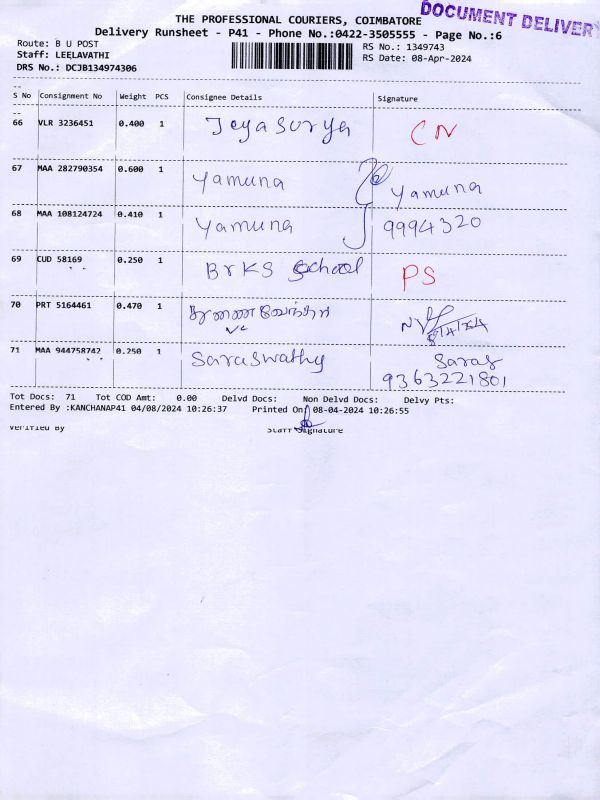 THE PROFESSIONAL COURIERS, COIMBATORE
DOCUMENT DELIVER
Delivery Runsheet - P41 - Phone No.:0422-3505555 - Page No.:6
Route: B U POST
RS No.: 1349743
Staff: LEELAVATHI
RS Date: 08-Apr-2024
DRS No.: DCJB134974306
S No Consignment No Weight PCS Consignee Details Signature
66 VLR 3236451 0.400 1 Jeyasurya CN
67 MAA 282790354 0.600 1 Yamuna Yamuna
68 MAA 108124724 0.410 1 Yamuna 9994320
69 CUD 58169 0.250 1 BrKS School PS
70 PRT 5164461 0.470 1
71 MAA 944758742 0.250 1 Saraswathy Saras
9363221801
Tot Docs: 71 Tot COD Amt: 0.00 Delvd Docs: Non Delvd Docs: Delvy Pts:
Entered By :KANCHANAP41 04/08/2024 10:26:37 Printed On: 08-04-2024 10:26:55
Verified By Staff Signature